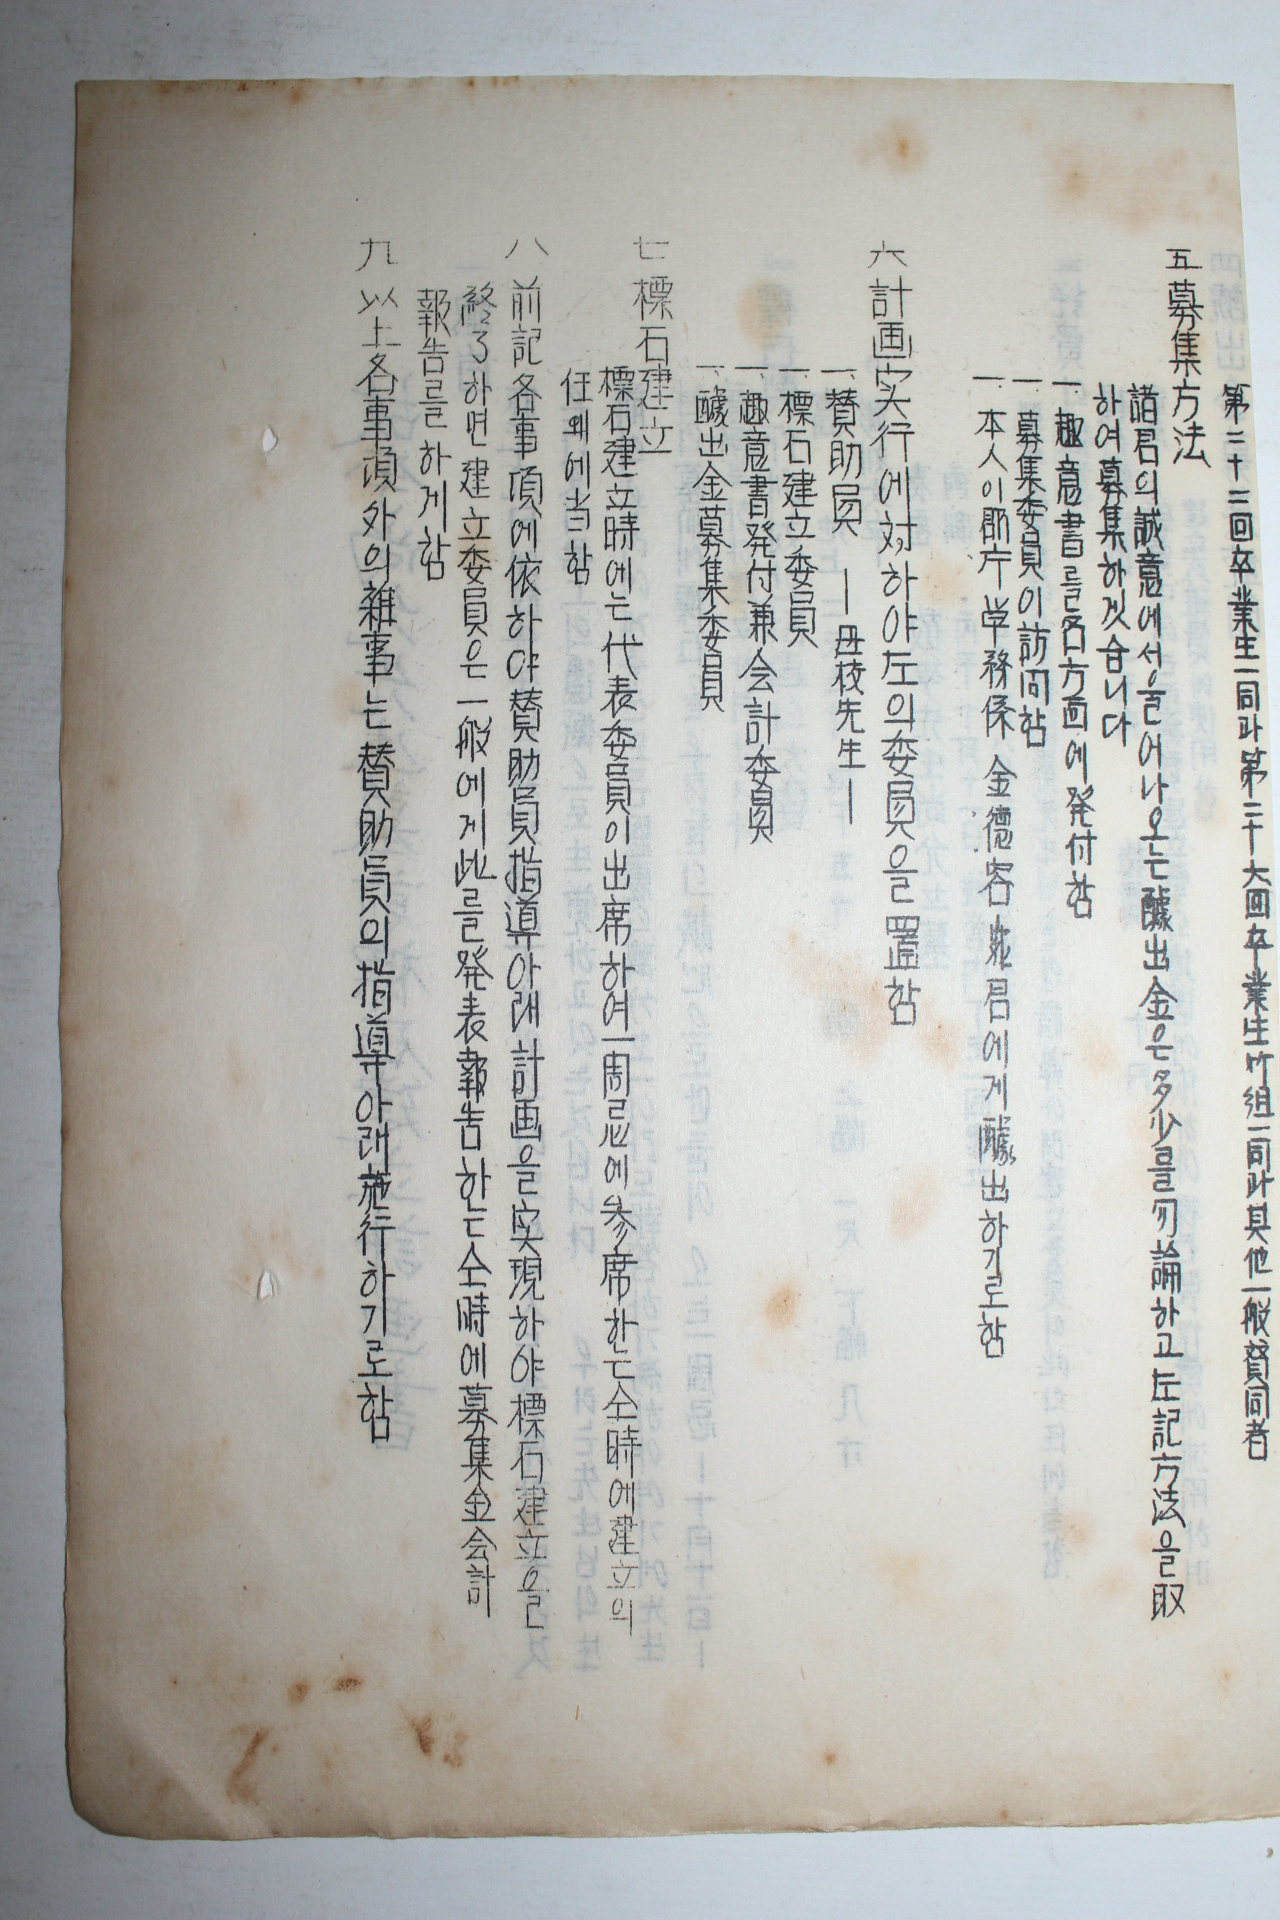 第二十三回卒業生一同과第二十六回卒業生竹組一同과其他一般賛同者
五 募集方法
諸君의誠意에서울어나오는醵出金은多少를勿論하고左記方法을取
하여募集하겠슴니다
一、趣意書를各方面에発付함
一、募集委員이訪問함
一、本人이郡庁学務係 金德容 君에게醵出하기로함
六 計画実行에対하야左의委員을置함
一、賛助員 ー丹枝先生ー
一、標石建立委員
一、趣意書発付兼会計委員
一、醵出金募集委員
七 標石建立
標石建立時에는代表委員이出席하여一周忌에参席하는仝時에建立의
任에当함
八 前記各事項에依하야賛助員指導아래計画을実現하야標石建立을
終了하면建立委員은一般에게此를発表報告하는仝時에募集金会計
報告를하게함
九 以上各事項外의雑事는賛助員의指導아래施行하기로함